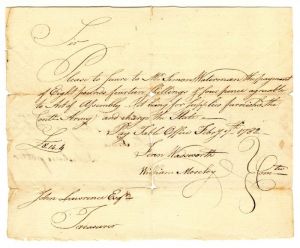 Sir
Please to secure to Mr. Simon Waterman the payment
of Eight pounds fourteen Shillings & four pence agreable
to Act of Assembly. It being for supplies furnished the
Contl. Army and charge the State
Pay Table Office Feby 7th. 1782
£8.14.4
Fenn Wadsworth
William Moseley
Comtte
John Lawrence Esqr.
Treasurer